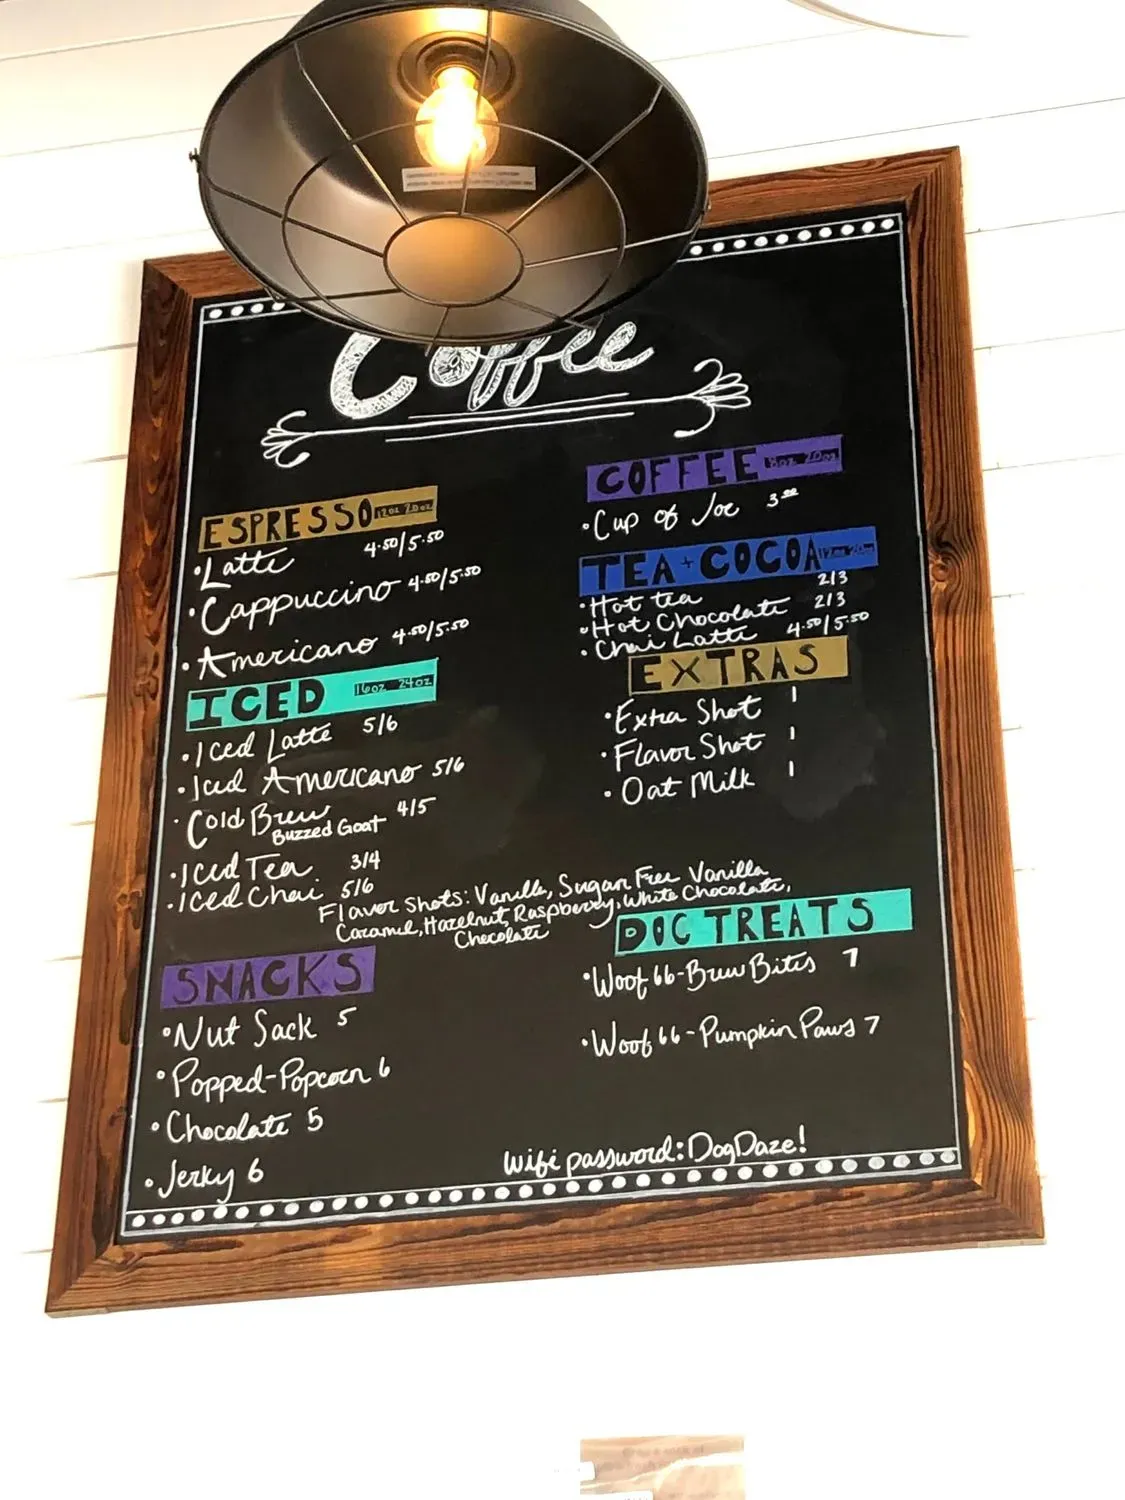 Coffee
ESPRESSO 12oz 20oz
• Latte 4.50/5.50
• Cappuccino 4.50/5.50
• Americano 4.50/5.50
ICED 16oz 24oz
• Iced Latte 5/6
• Iced Americano 5/6
• Cold Brew 4/5
Buzzed Goat
• Iced Tea 3/4
• Iced Chai 5/6
Flavor Shots: Vanilla, Sugar Free Vanilla
Caramel, Hazelnut, Raspberry, White Chocolate,
Chocolate
SNACKS
• Nut Sack 5
• Popped-Popcorn 6
• Chocolate 5
• Jerky 6
COFFEE 8oz 20oz
• Cup of Joe 3.00
TEA + COCOA 12oz 20oz
• Hot tea 2/3
• Hot Chocolate 2/3
• Chai Latte 4.50/5.50
EXTRAS
• Extra Shot 1
• Flavor Shot 1
• Oat Milk 1
DOG TREATS
• Woof 66-Brew Bites 7
• Woof 66-Pumpkin Paws 7
Wifi password: DogDaze!